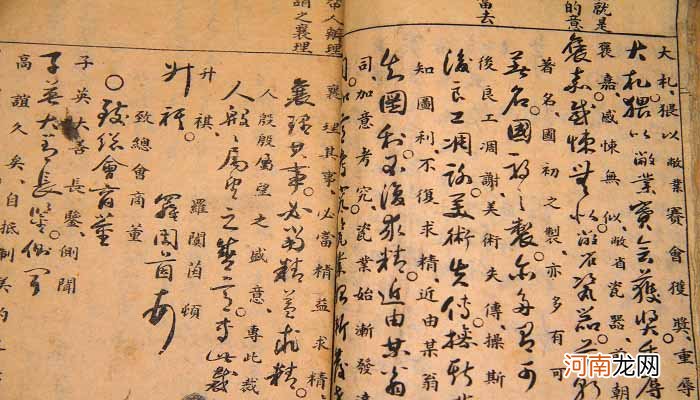 就是
的意
當去
大札猥以敝業賽會獲獎重辱
大札。猥以敝業賽會獲獎。重辱
褒嘉感悚無似敝省瓷器前朝
褒嘉。感悚無似。敝省瓷器。前朝
著名國初之製亦多有可
著名。國初之製。亦多有可
後良工凋謝美術失傳操斯
後良工凋謝。美術失傳。操斯
知圖利不復求精近由某翁
知圖利。不復求精。近由某翁
司加意考究瓷業始漸發達
人辦理
謂之襄理
襄理其事必當精益求精
襄理其事。必當精益求精。
人殷殷屬望之盛意專此裁
人殷殷屬望之盛意。專此裁
升祺 羅闓茵頓
升祺 羅闓茵頓
致總會商董
○致總會商董
子英大善長鑒側聞
子英大善長鑒。側聞
高誼久矣自抵制美約
河南龙网